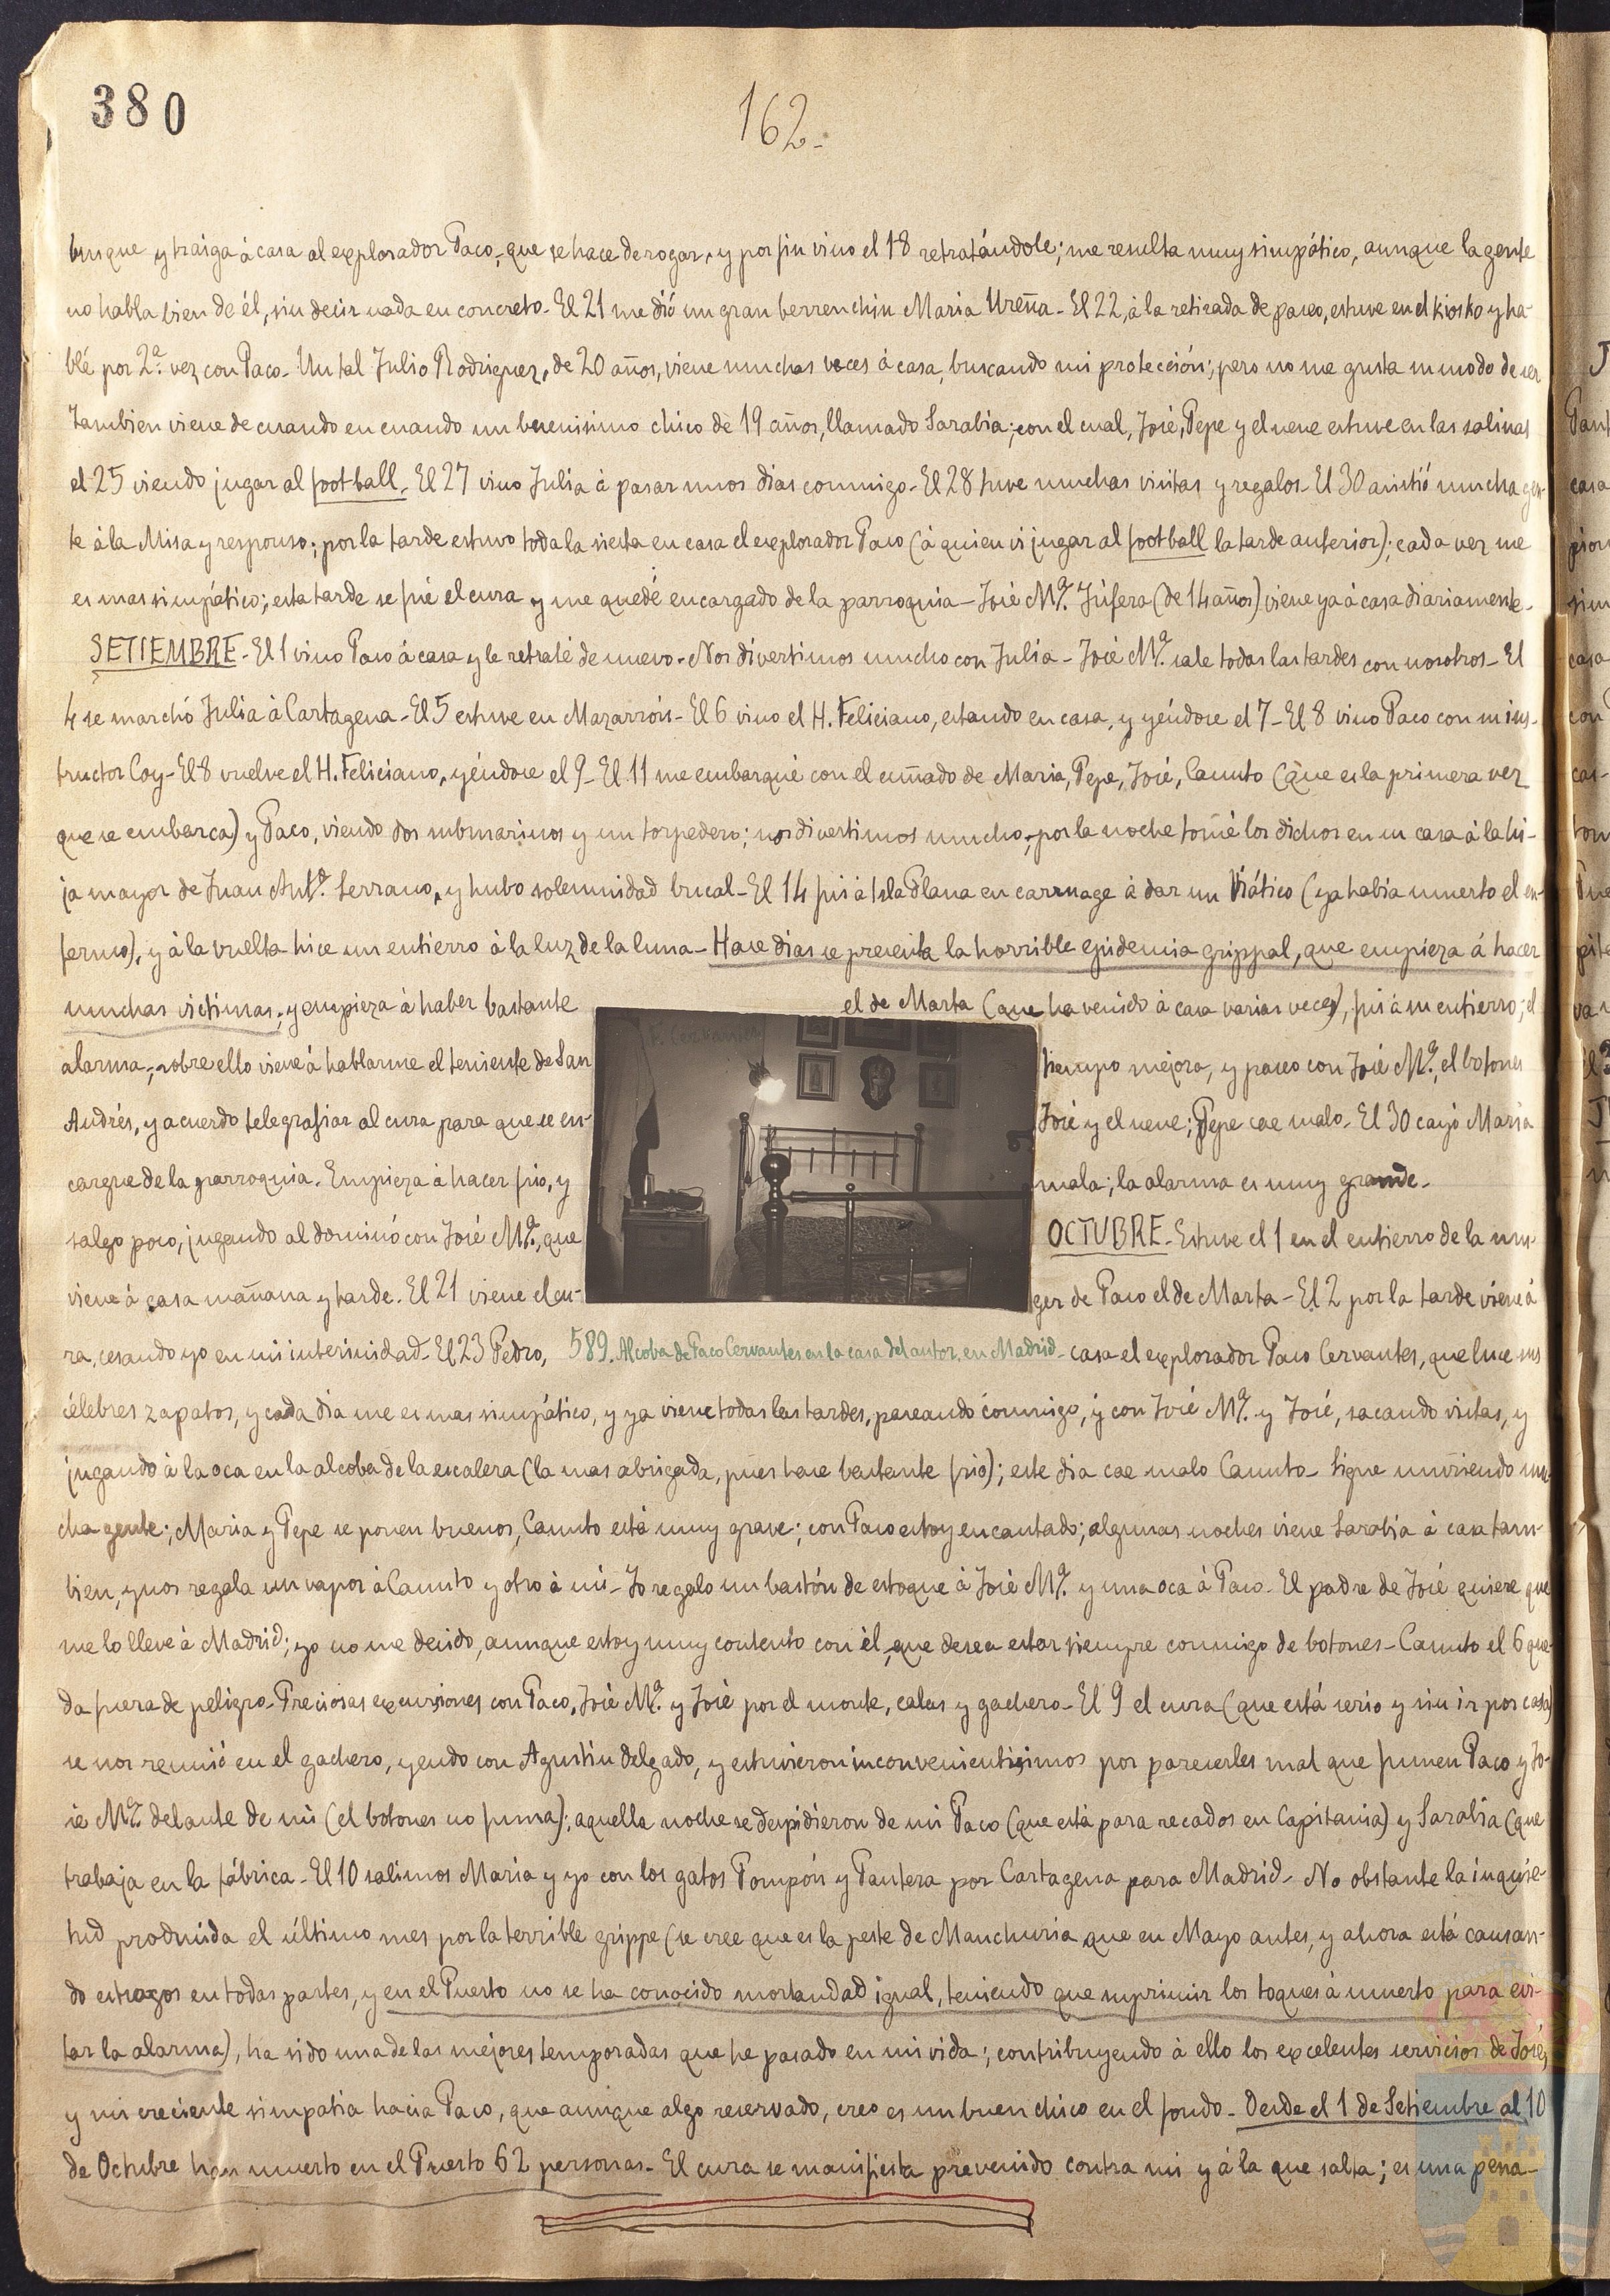 380
162.-
busque y traiga á casa al explorador Paco, que se hace de rogar, y por fin vino el 18 retratándole; me resulta muy simpático, aunque la gente
no habla bien de él, sin decir nada en concreto- El 21 me dió un gran berrenchin Maria Ureña- El 22, á la retirada de paseo, estuve en el kiosko y ha-
blé por 2ª vez con Paco- Un tal Julio Rodriguez, de 20 años, viene muchas veces á casa, buscando mi protección; pero no me gusta su modo de ser
Tambien viene de cuando en cuando un buenisimo chico de 19 años, llamado Sarabia; con el cual, José, Pepe y el nene estuve en las salinas
el 25 viendo jugar al foot-ball- El 27 vino Julia á pasar unos dias conmigo- El 28 tuve muchas visitas y regalos- El 30 asistió mucha gen-
te á la Misa y responso; por la tarde estuvo toda la siesta en casa el explorador Paco (á quien vi jugar al foot-ball la tarde anterior); cada vez me
es mas simpático; esta tarde se fué el cura y me quedé encargado de la parroquia- José Mª. Júfera (de 14 años) viene ya á casa diariamente-
SETIEMBRE- El 1 vino Paco á casa y le retraté de nuevo- Nos divertimos mucho con Julia- José Mª. sale todas las tardes con nosotros- El
4 se marchó Julia á Cartagena- El 5 estuve en Mazarrón- El 6 vino el H. Feliciano, estando en casa, y yéndose el 7- El 8 vino Paco con su ins-
tructor Coy- El 8 vuelve el H. Feliciano, yéndose el 9- El 11 me embarqué con el cuñado de Maria, Pepe, José, Canuto (que es la primera vez
que se embarca) y Paco, viendo dos submarinos y un torpedero; nos divertimos mucho; por la noche tomé los dichos en su casa á la hi-
ja mayor de Juan Antº. Serrano, y hubo solemnidad bucal- El 14 fui á Isla Plana en carruage á dar un Viático (ya habia muerto el en-
fermo), y á la vuelta hice un entierro á la luz de la luna- Hace dias se presenta la horrible epidemia grippal, que empieza á hacer
muchas victimas; y empieza á haber bastante
alarma; sobre ello viene á hablarme el teniente de San
Andrés, y acuerdo telegrafiar al cura para que se en-
cargue de la parroquia. Empieza á hacer frio, y
salgo poco, jugando al dominó con José Mª., que
viene á casa mañana y tarde. El 21 viene el cu-
ra, cesando yo en mi interinidad- El 23 Pedro,
el de Marta (que ha venido á casa varias veces), fui á su entierro; el
tiempo mejora, y paseo con José Mª., el botones
José y el nene; Pepe cae malo- El 30 cayó Maria
mala; la alarma es muy grande-
OCTUBRE- Estuve el 1 en el entierro de la mu-
ger de Paco el de Marta- El 2 por la tarde viene á
589. Alcoba de Paco Cervantes en la casa del autor, en Madrid-
casa el explorador Paco Cervantes, que luce sus
célebres zapatos, y cada dia me es mas simpático, y ya viene todas las tardes, paseando conmigo, y con José Mª. y José, sacando vistas, y
jugando á la oca en la alcoba de la escalera (la mas abrigada, pues hace bastante frio); este dia cae malo Canuto- Sigue muriendo mu-
cha gente; Maria y Pepe se ponen buenos, Canuto está muy grave; con Paco estoy encantado; algunas noches viene Sarabia á casa tam-
bien, y nos regala un vapor á Canuto y otro á mi- Yo regalo un bastón de estoque á José Mª. y una oca á Paco- El padre de José quiere que
me lo lleve á Madrid; yo no me decido, aunque estoy muy contento con él, que desea estar siempre conmigo de botones- Canuto el 6 que-
da fuera de peligro- Preciosas excursiones con Paco, José Mª. y José por el monte, calas y gachero- El 9 el cura (que está serio y sin ir por casa)
se nos reunió en el gachero, yendo con Agustin Delgado, y estuvieron inconvenientisimos por parecerles mal que fumen Paco y Jo-
sé Mª. delante de mi (el botones no fuma); aquella noche se despidieron de mi Paco (que está para recados en Capitania) y Sarabia (que
trabaja en la fábrica- El 10 salimos Maria y yo con los gatos Pompón y Pantera por Cartagena para Madrid- No obstante la inquie-
tud producida el último mes por la terrible grippe (se cree que es la peste de Manchuria que en Mayo antes, y ahora está causan-
do estragos en todas partes, y en el Puerto no se ha conocido mortandad igual, teniendo que suprimir los toques á muerto para evi-
tar la alarma), ha sido una de las mejores temporadas que he pasado en mi vida; contribuyendo á ello los excelentes servicios de José,
y mi creciente simpatia hacia Paco, que aunque algo reservado, creo es un buen chico en el fondo- Desde el 1 de Setiembre al 10
de Octubre han muerto en el Puerto 62 personas- El cura se manifiesta prevenido contra mi y á la que salta; es una pena-